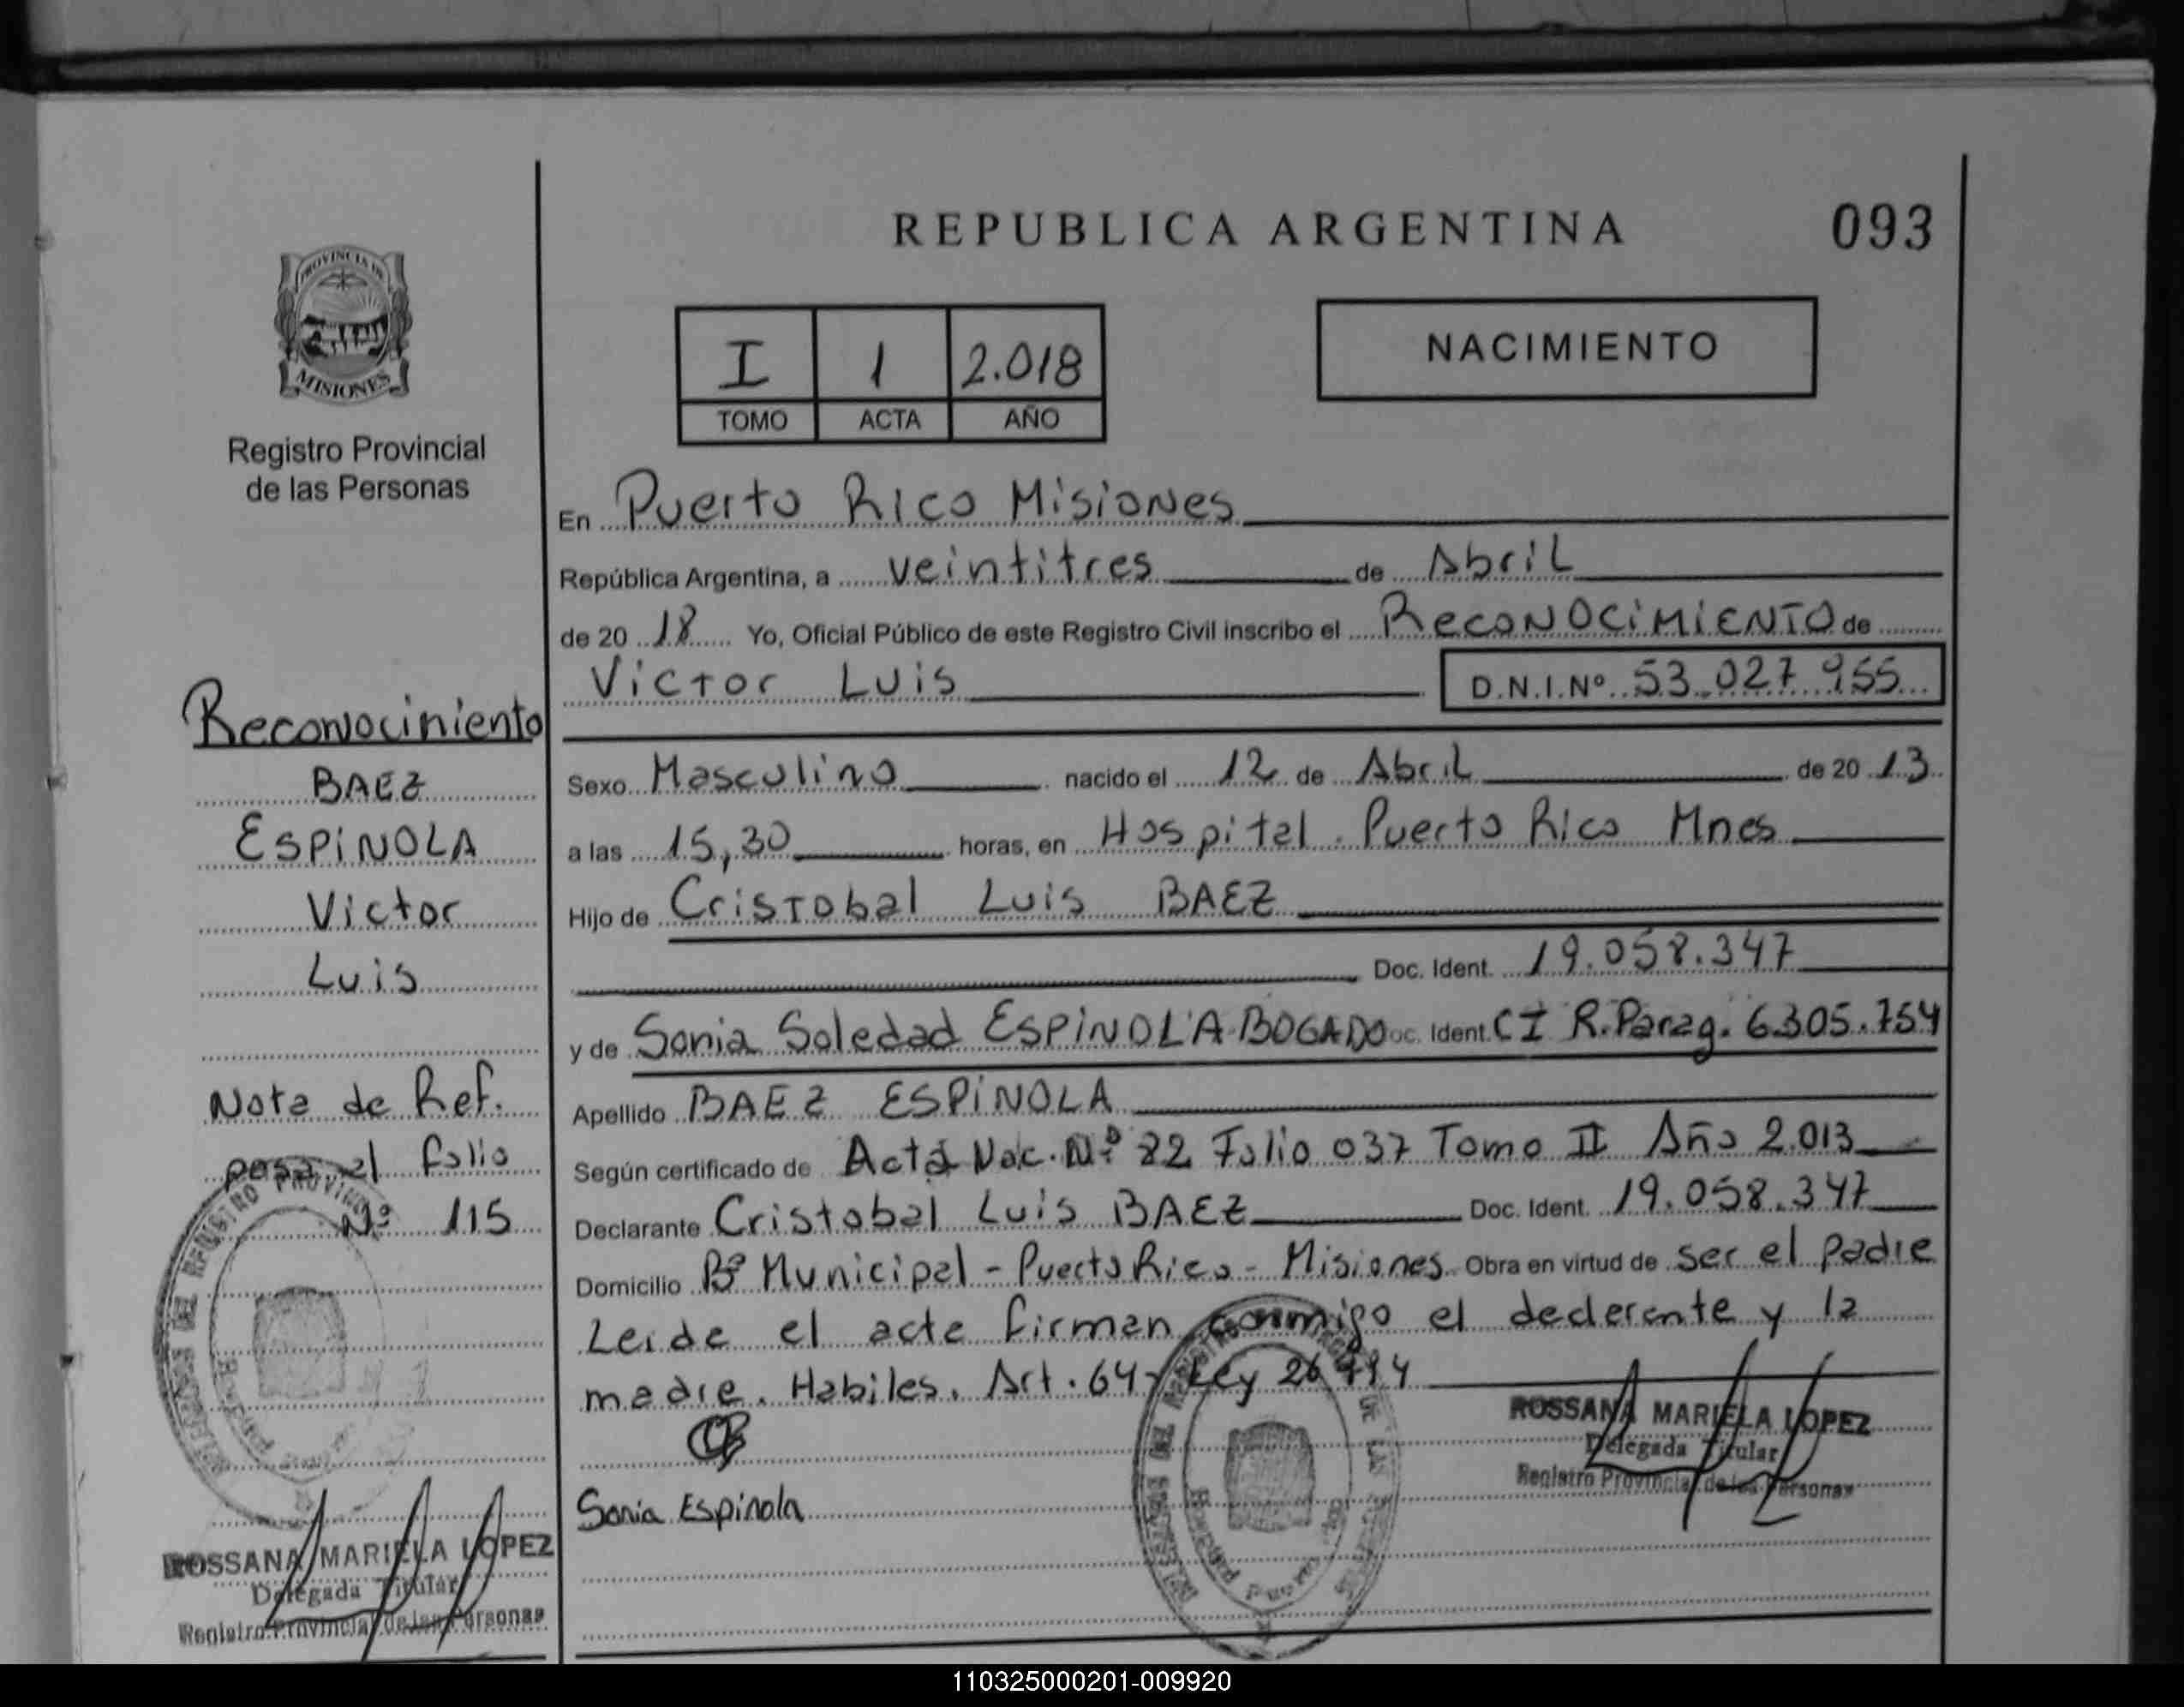 REPUBLICA ARGENTINA
093
PROVINCIA DE
MISIONES
Registro Provincial
de las Personas
I 1 2.018
TOMO ACTA AÑO
NACIMIENTO
En Puerto Rico Misiones
República Argentina, a veintitres de Abril
de 20 18 Yo, Oficial Público de este Registro Civil inscribo el Reconocimiento de
Victor Luis D.N.I.Nº 53.027.955
Sexo Masculino nacido el 12 de Abril de 20 13
a las 15,30 horas, en Hospital. Puerto Rico Mnes
Hijo de Cristobal Luis BAEZ
Doc. Ident. 19.058.347
y de Sonia Soledad ESPINOLA BOGADO Doc. Ident. CI R.Parag. 6305.754
Apellido BAEZ ESPINOLA
Según certificado de Acta Nac. Nº 82 Folio 037 Tomo II Año 2.013
Declarante Cristobal Luis BAEZ Doc. Ident. 19.058.347
Domicilio Bº Municipal - Puerto Rico - Misiones Obra en virtud de ser el padre
Leida el acta firman conmigo el declarante y la
madre. Habiles. Art. 64 Ley 26
Sonia Espinola
ROSSANA MARIELA LOPEZ
Delegada Titular
Registro Provincial de las Personas
Reconocimiento
BAEZ
ESPINOLA
Victor
Luis
Nota de Ref.
pasa al folio
Nº 115
ROSSANA MARIELA LOPEZ
Delegada Titular
Registro Provincial de las Personas
110325000201-009920